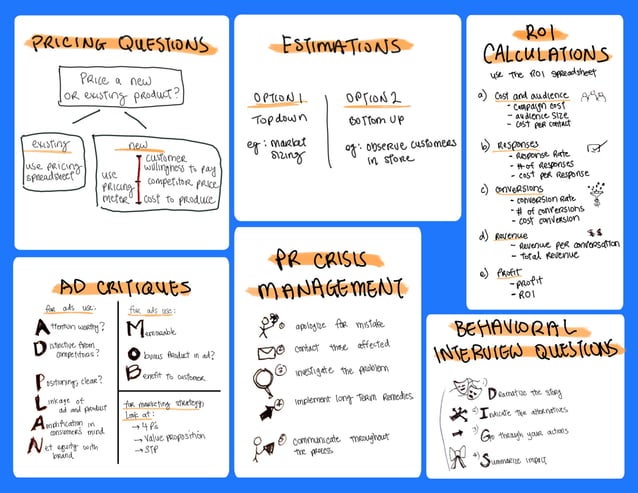 PRICING QUESTIONS
PRICE A NEW
OR EXISTING PRODUCT?
existing
use pricing
spreadsheet
new
use
pricing
meter
customer
willingness to pay
competitor price
cost to produce
ESTIMATIONS
OPTION 1
Top down
eg: market
sizing
OPTION 2
Bottom up
eg: observe customers
in store
ROI
CALCULATIONS
use the ROI spreadsheet
a) Cost and audience
- campaign cost
- audience size
- cost per contact
b) Responses
- Response Rate
- # of Responses
- cost per Response
c) conversions
- conversion Rate
- # of conversions
- cost conversion
d) Revenue
- Revenue per conversation
- Total Revenue
e) Profit
- profit
- ROI
AD CRITIQUES
for ads use:
Attention worthy?
Distinctive from
competitors?
Positioning; clear?
Linkage of
ad and product
Amplification in
consumers mind
Net equity with
brand
for ads use:
Memorable
Obvious Product in ad?
Benefit to customer
for marketing strategy;
Look at:
→ 4 Ps
→ Value proposition
→ STP
PR CRISIS
MANAGEMENT
① apologize for mistake
② contact those affected
③ investigate the problem
④ implement long Team Remedies
⑤ communicate throughout
the process
BEHAVIORAL
INTERVIEW QUESTIONS
Dramatize the story
Indicate the alternatives
Go through your actions
Summarize impact